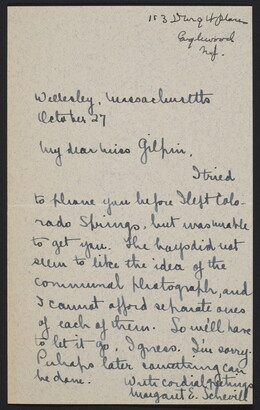 153 Dwight Place
Englewood
N.J.
Wellesley, Massachusetts
October 27
My dear Miss Gilpin,
I tried
to phone you before I left Colo-
rado Springs, but was unable
to get you. The boys did not
seem to like the idea of the
communal photograph, and
I cannot afford separate ones
of each of them. So we'll have
to let it go, I guess. I'm sorry.
Perhaps later something can
be done.
With cordial greetings
Margaret E. Schevill